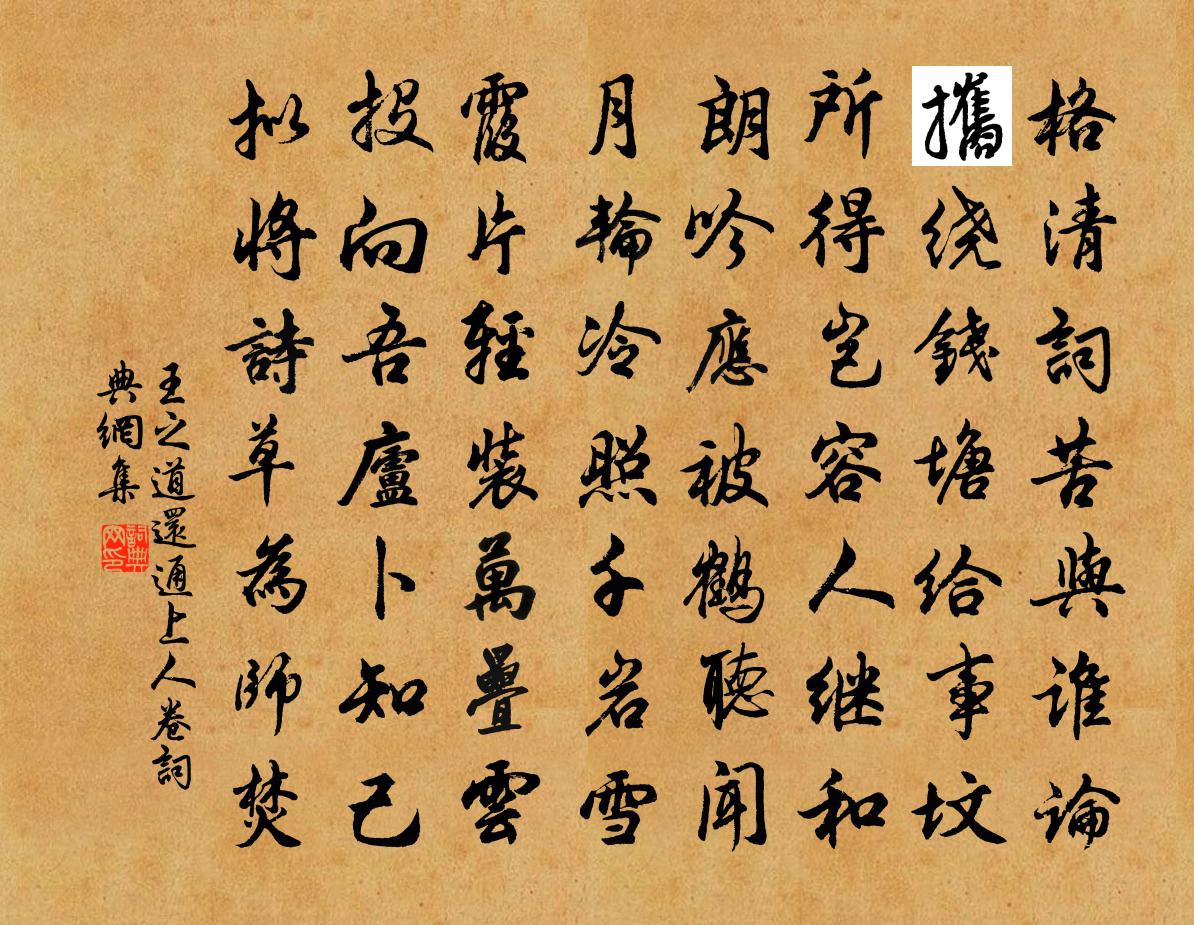 格清詞苦與誰論
攜绕錢塘给事坟
所得岂容人继和
朗吟應被鶴聽聞
月輪冷照千岩雪
霞片輕裝萬疊雲
投向吾廬卜知己
拟將詩草為師焚
王之道還通上人卷詞
典網集
詞典网印